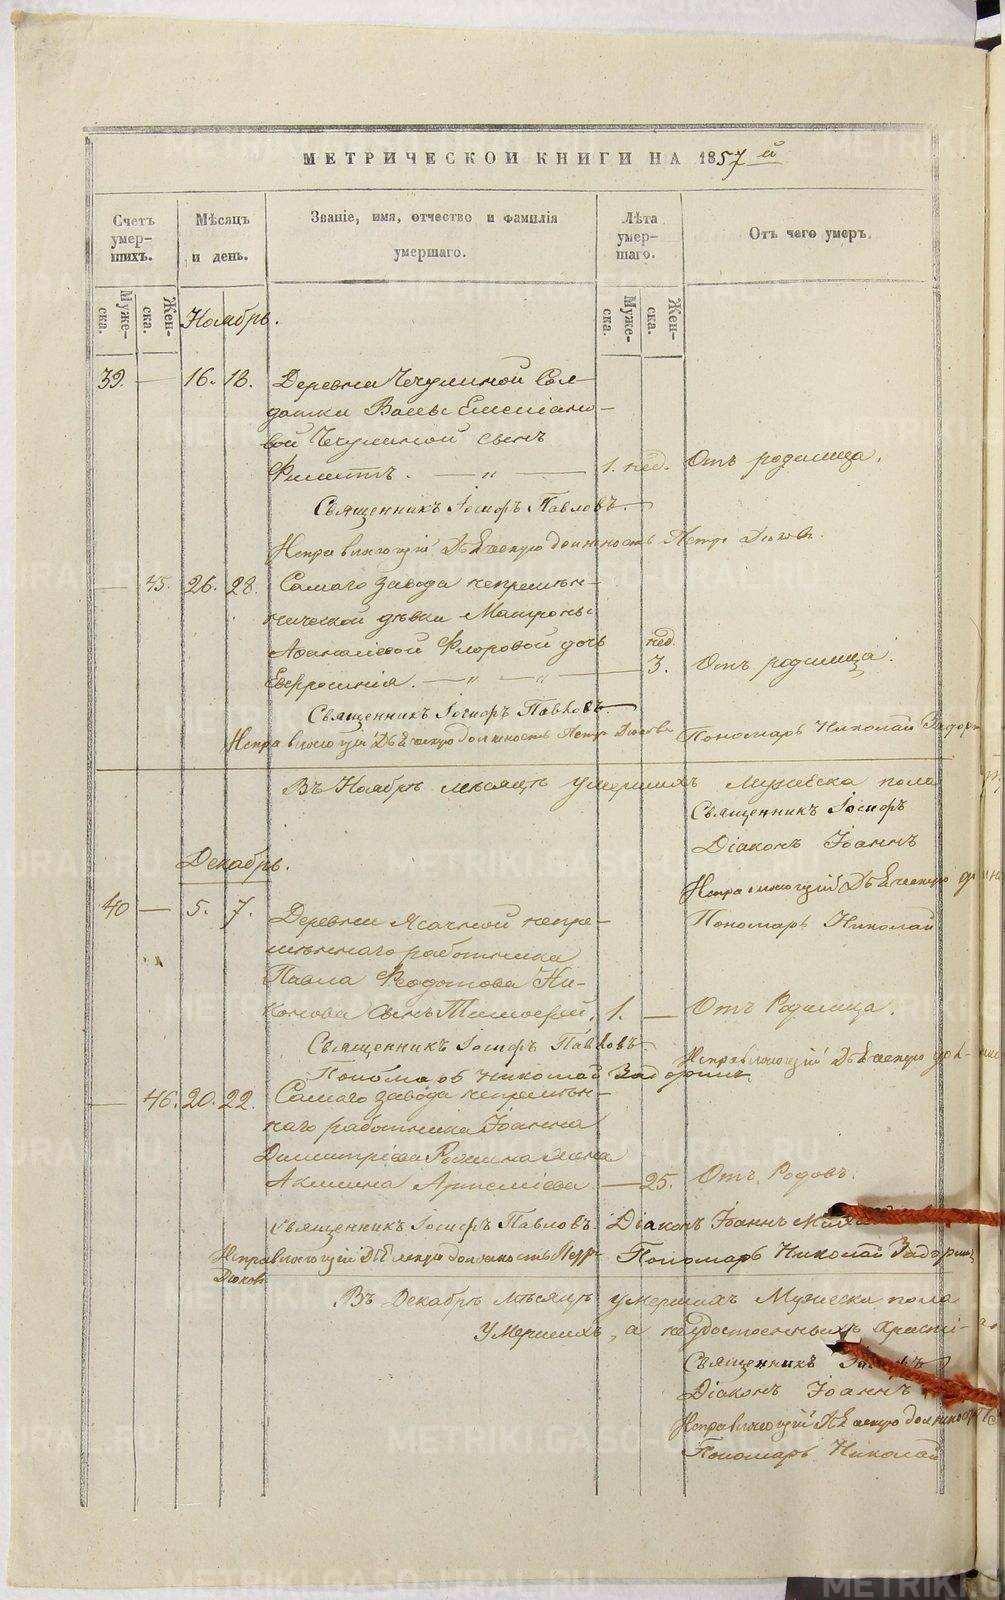 МЕТРИЧЕСКОЙ КНИГИ НА 1857й
Счетъ умер-шихъ.
Мѣсяцъ и день.
Званіе, имя, отчество и фамилія умершаго.
Лѣта умер-шаго.
Отъ чего умеръ.
Муже-ска.
Жен-ска.
Муже-ска.
Жен-ска.
Ноябрь.
39. — 16. 18. Деревни Чечулиной Сол-
датки Емелiано-
вой Чечулиной сынъ
Филиппъ. — „ — 1. нед. Отъ родимца.
Священникъ Іосифъ Павловъ.
Исправляющій должность Петръ
— 45. 26. 28. Самаго завода непремѣн-
нической дѣвки Матроны
Флоровой дочь нед.
Евфросинія. — „ — „ — 3. Отъ родимца.
Священникъ Іосифъ Павловъ.
Исправляющій должность Петръ Пономарь Николай Задорин
Въ Ноябрѣ мѣсяцѣ умершихъ Мужеска пола
Священникъ Іосифъ
Діаконъ Іоаннъ
Декабрь.
Исправляющій
Пономарь Николай
40 — 5. 7. Деревни Ясачной непре-
мѣннаго работника
Павла Ѳедотова Ни-
конова сынъ Тимофей. 1. — Отъ Родимца.
Священникъ Іосифъ Павловъ.
Исправляющій
Пономарь Николай Задоринъ.
— 46. 20. 22. Самаго завода непремѣн-
наго работника Іоанна
Димитріева жена
Акилина Артеміева — 25. Отъ Родовъ.
Священникъ Іосифъ Павловъ. Діаконъ Іоаннъ
Исправляющій должность Петръ Пономарь Николай Задоринъ
Въ Декабрѣ мѣсяцѣ умершихъ Мужеска пола
Умершихъ, а неудостоенныхъ Христі-
Священникъ Іосифъ
Діаконъ Іоаннъ
Исправляющій должность
Пономарь Николай
METRIKI.GASO-URAL.RU